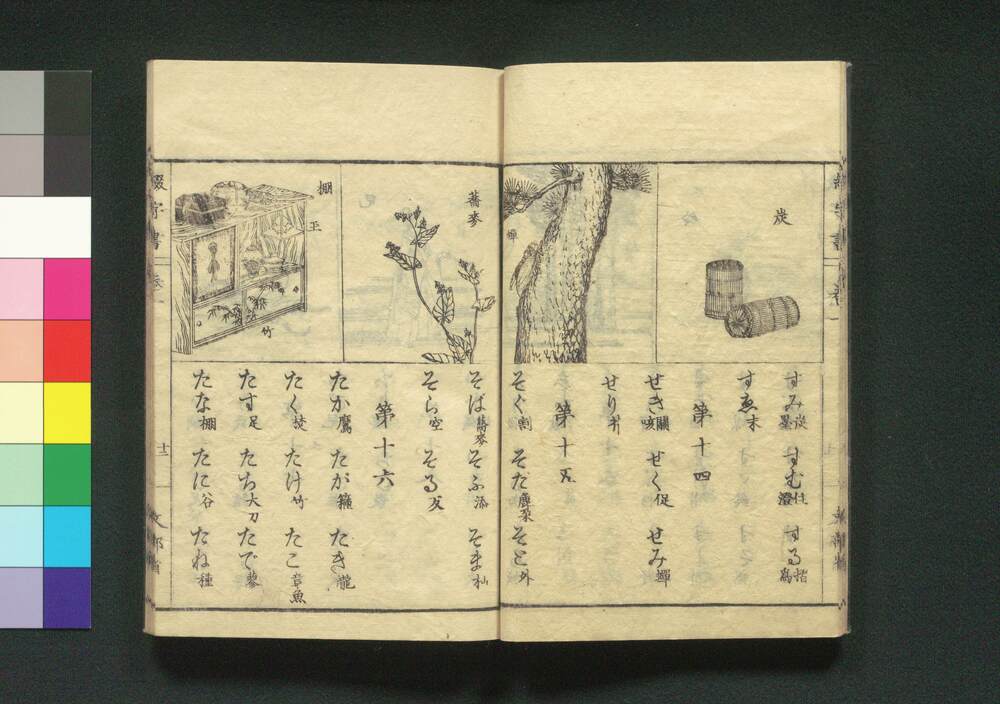 炭
すみ 炭 墨 すむ 住 澄 する 摺 爲
すゑ 末
第十四
せき 關 咳 せく 促 せみ 蟬
せり 芹
蟬
第十五
そぐ 割 そだ 麁朶 そと 外
蕎麥
そば 蕎麥 そふ 添 そま 杣
そら 空 そる 反
第十六
棚
たか 鷹 たが 籠 たき 瀧
たく 焚 たけ 竹 たこ 章魚
たす 足 たち 大刀 たで 蓼
たな 棚 たに 谷 たね 種
竹
綴字書
十二
文部省